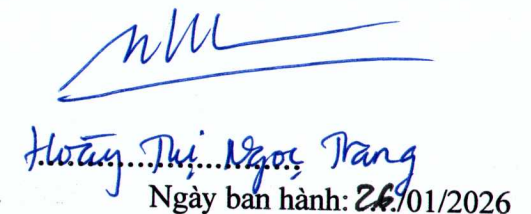 Hoàng Thị Ngọc Trang
Ngày ban hành: 26/01/2026